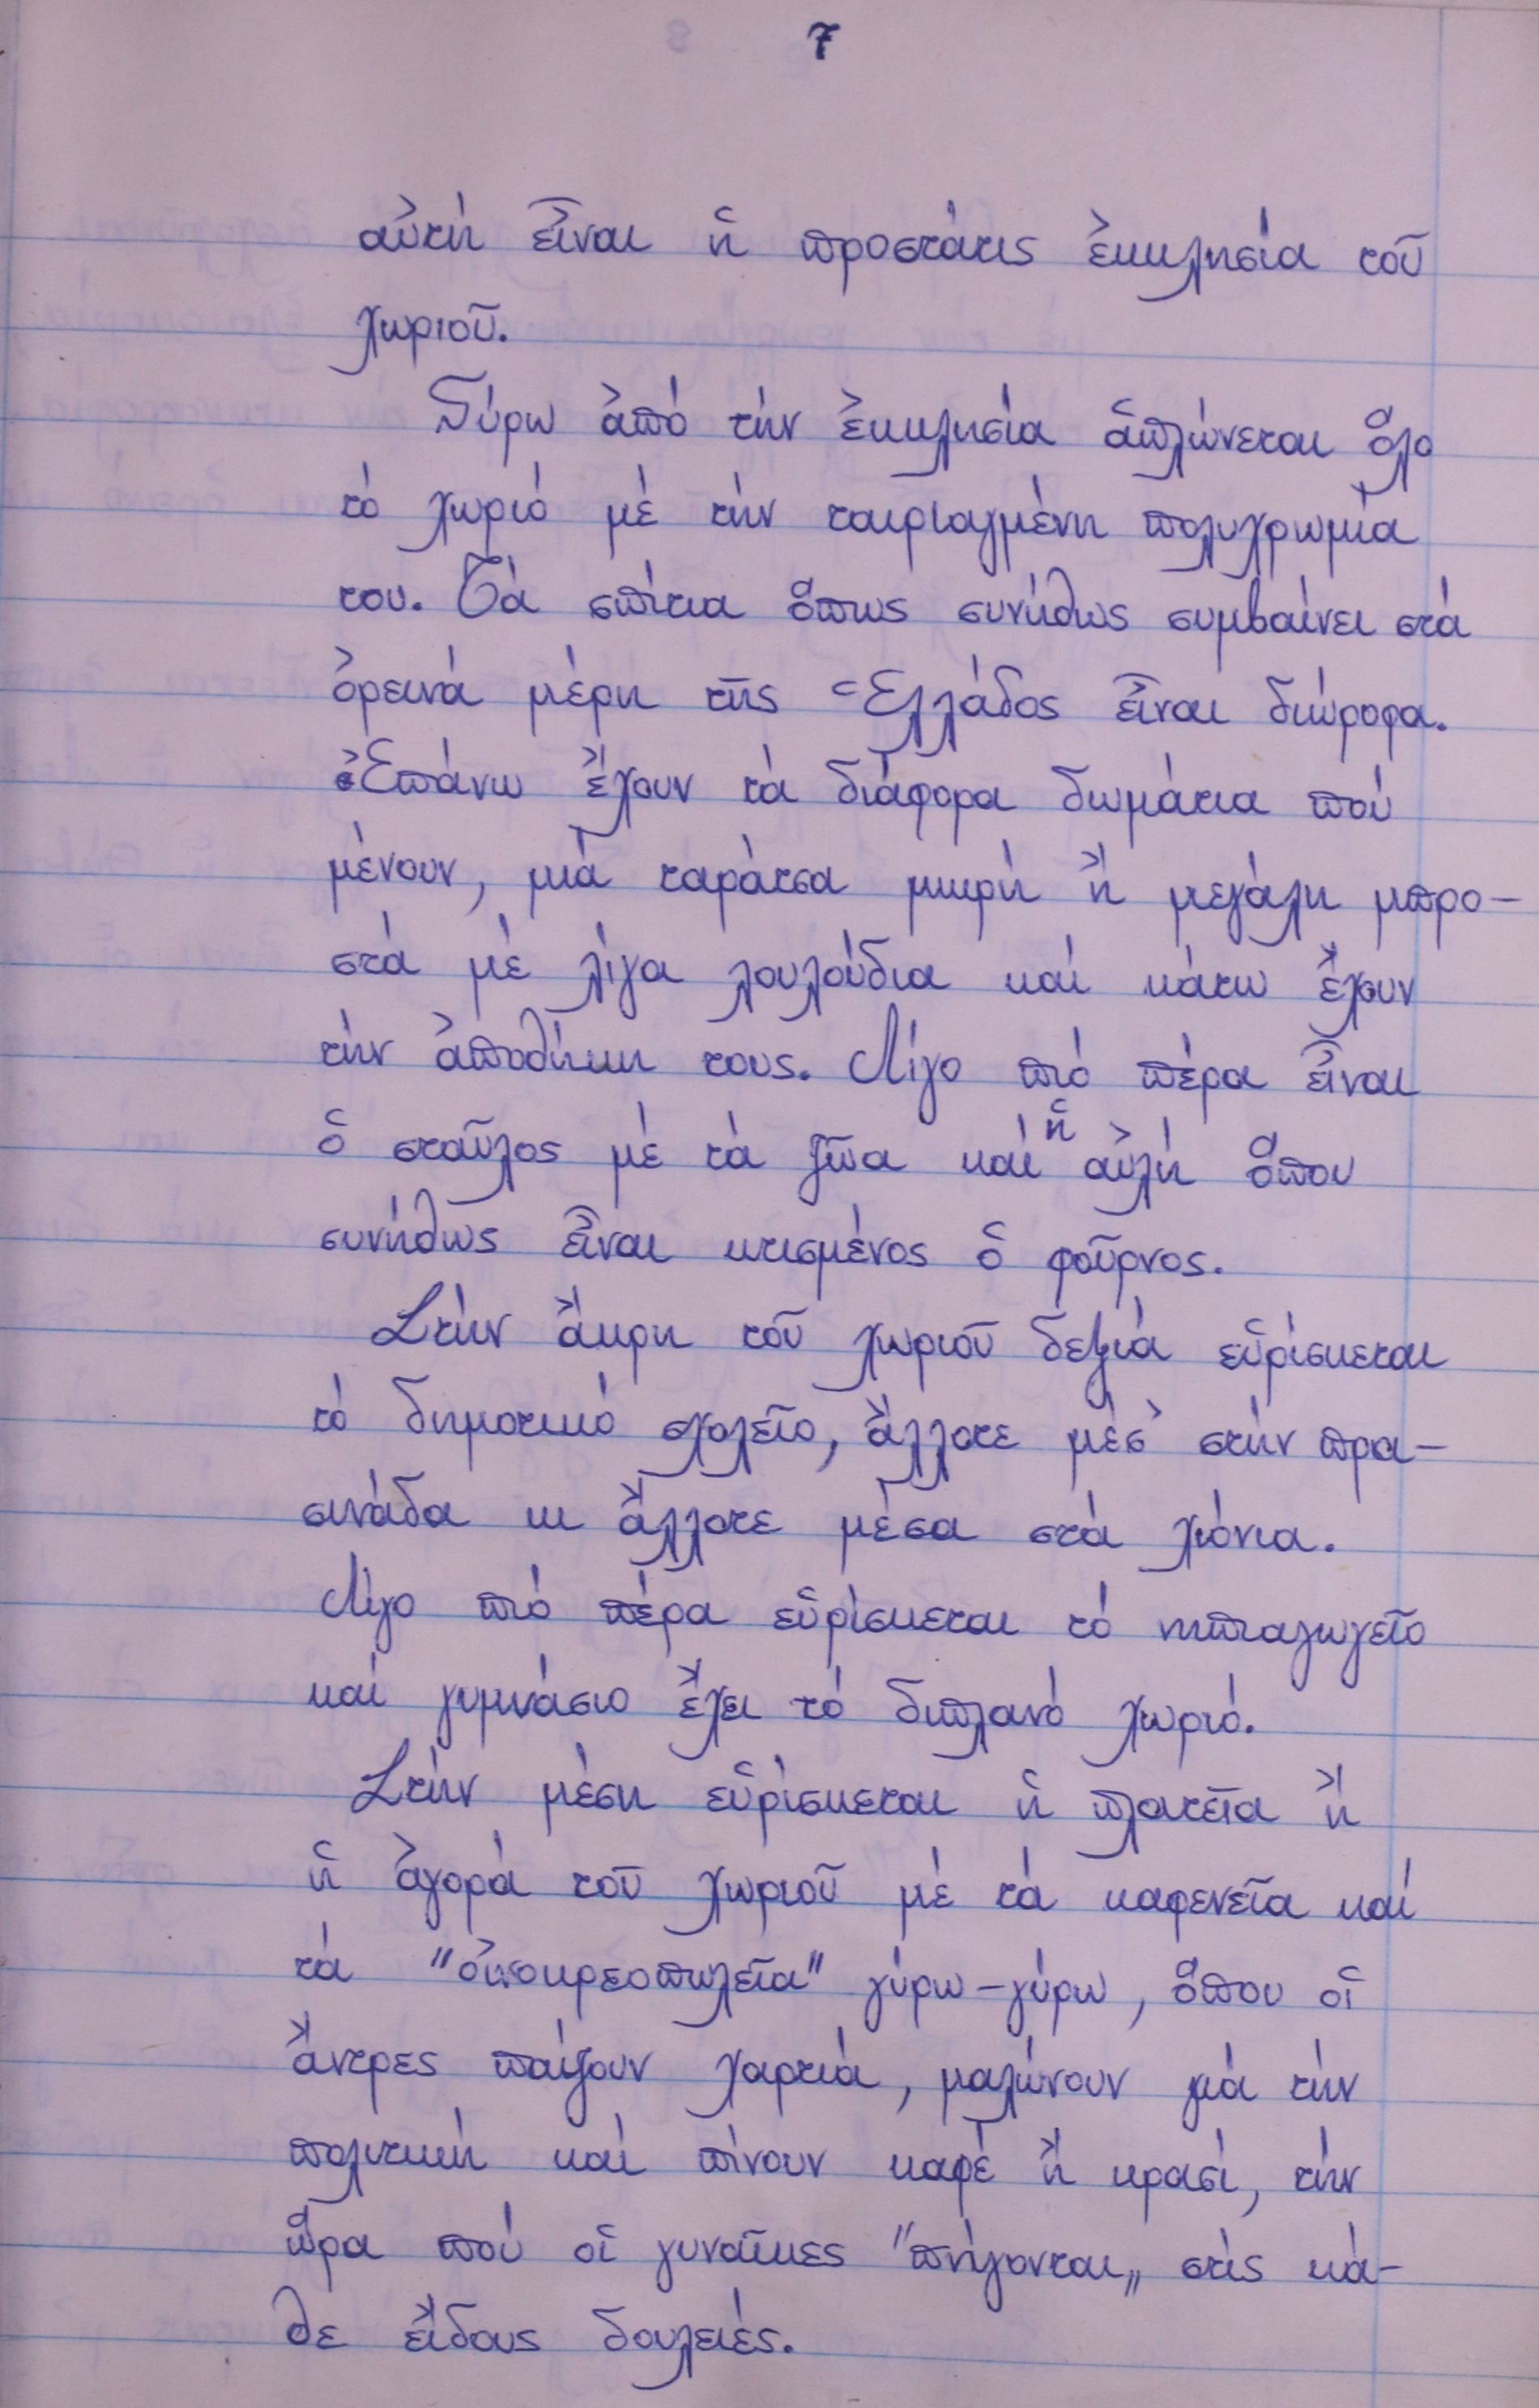 7
αὐτή εἶναι ἡ προστάτις ἐκκλησία τοῦ
χωριοῦ.
Γύρω ἀπό τήν ἐκκλησία ἁπλώνεται ὅλο
τό χωριό μέ τήν ταιριαγμένη πολυχρωμία
του. Τά σπίτια ὅπως συνήθως συμβαίνει στά
ὀρεινά μέρη τῆς Ἑλλάδος εἶναι διώροφα.
Ἐπάνω ἔχουν τά διάφορα δωμάτια πού
μένουν, μιά ταράτσα μικρή ἤ μεγάλη μπρο-
στά μέ λίγα λουλούδια καί κάτω ἔχουν
τήν ἀποθήκη τους. Λίγο πιό πέρα εἶναι
ὁ σταῦλος μέ τά ζῶα καί ἡ αὐλή ὅπου
συνήθως εἶναι κτισμένος ὁ φοῦρνος.
Στήν ἄκρη τοῦ χωριοῦ δεξιά εὑρίσκεται
τό δημοτικό σχολεῖο, ἄλλοτε μέσ' στήν πρα-
σινάδα κι ἄλλοτε μέσα στά χιόνια.
Λίγο πιό πέρα εὑρίσκεται τό νηπιαγωγεῖο
καί γυμνάσιο ἔχει τό διπλανό χωριό.
Στήν μέση εὑρίσκεται ἡ πλατεῖα ἤ
ἡ ἀγορά τοῦ χωριοῦ μέ τά καφενεῖα καί
τά "οἰνοκρεοπωλεῖα" γύρω-γύρω, ὅπου οἱ
ἄντρες παίζουν χαρτιά, μαλώνουν γιά τήν
πολιτική καί πίνουν καφέ ἤ κρασί, τήν
ὥρα πού οἱ γυναῖκες "πνίγονται„ στίς κά-
θε εἴδους δουλειές.